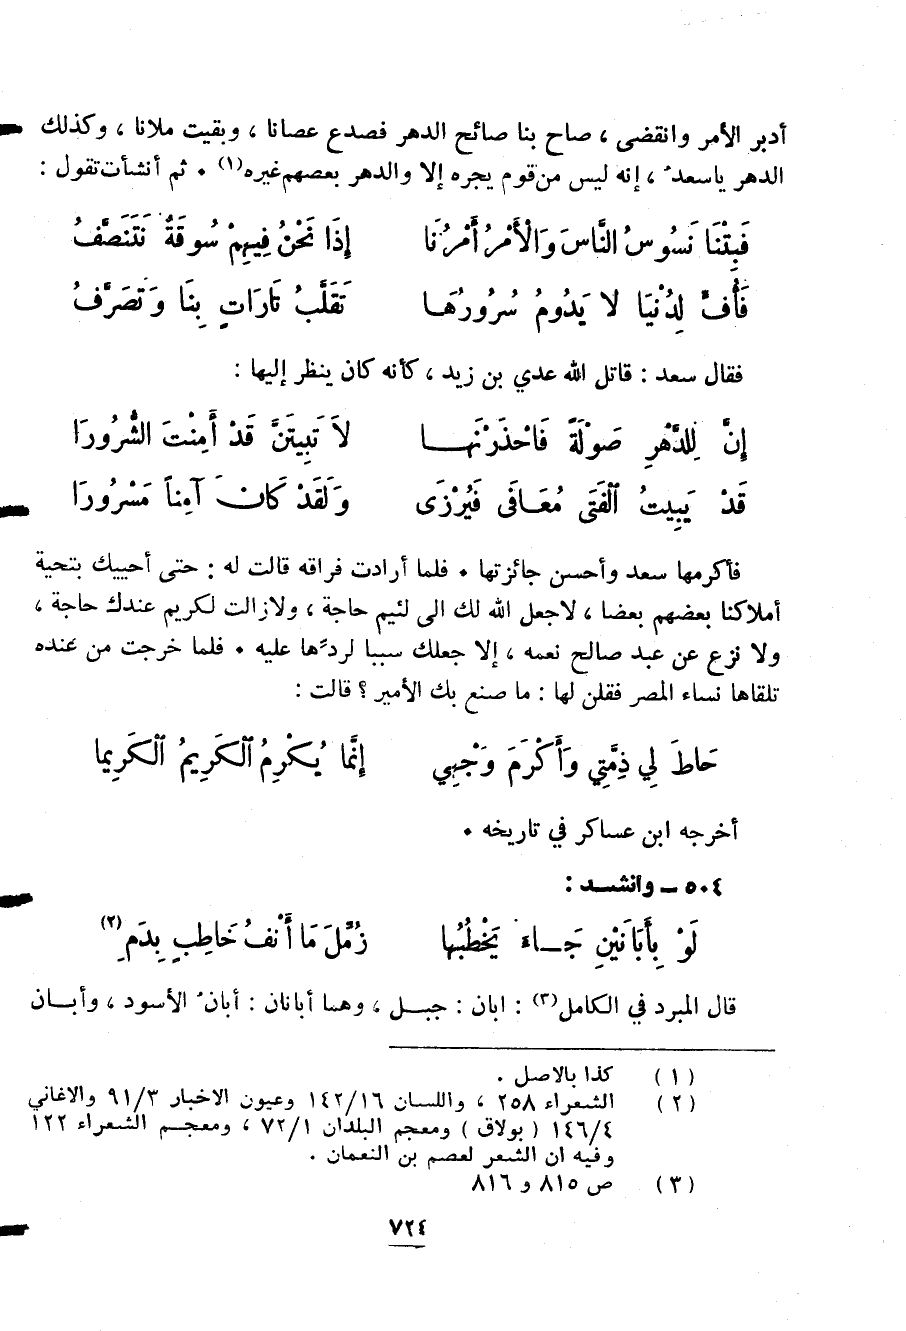 أدبر الأمر وانقضى ، صاح بنا صائح الدهر فصدع عصانا ، وبقيت ملانا ، وكذلك
الدهر ياسعدُ ، إنه ليس من قوم يجره إلا والدهر بعصهم غيره(١) . ثم أنشأت تقول :
فَبِتْنَا نَسُوسُ النَّاسَ وَالْأَمْرُ أَمْرُنَا إِذَا نَحْنُ فِيهِمْ سُوقَةٌ نَتَنَصَّفُ
فَأُفٍّ لِدُنْيَا لا يَدُومُ سُرُورُهَا تَقَلَّبُ تَارَاتٍ بِنَا وَتَصَرَّفُ
فقال سعد : قاتل الله عدي بن زيد ، كأنه كان ينظر إليها :
إِنَّ لِلدَّهْرِ صَوْلَةً فَاحْذَرَنْهَا لاَ تَبِيتَنَّ قَدْ أَمِنْتَ الشُّرُورَا
قَدْ يَبِيتُ الْفَتَى مُعَافَى فَيُرْزَى وَلَقَدْ كَانَ آمِناً مَسْرُورَا
فأكرمها سعد وأحسن جائزتها . فلما أرادت فراقه قالت له : حتى أحييك بتحية
أملاكنا بعضهم بعضا ، لاجعل الله لك الى لئيم حاجة ، ولازالت لكريم عندك حاجة ،
ولا نزع عن عبد صالح نعمه ، إلا جعلك سببا لردّها عليه . فلما خرجت من عنده
تلقاها نساء المصر فقلن لها : ما صنع بك الأمير ؟ قالت :
حَاطَ لِي ذِمَّتِي وَأَكْرَمَ وَجْهِي إِنَّما يُكْرِمُ الْكَرِيمُ الْكَرِيما
أخرجه ابن عساكر في تاريخه .
٥٠٤ – وانشد :
لَوْ بِأَبَانَيْنِ جَاءَ يَخْطُبُها زُمِّلَ مَا أَنْفُ خَاطِبٍ بِدَمِ(٢)
قال المبرد في الكامل(٣) : ابان : جبل ، وهما أبانان : أبانُ الأسود ، وأبان
(١) كذا بالاصل .
(٢) الشعراء ٢٥٨ ، واللسان ١٤٢/١٦ وعيون الاخبار ٩١/٣ والاغاني
١٤٦/٤ ( بولاق ) ومعجم البلدان ٧٢/١ ، ومعجم الشعراء ١٢٢
وفيه ان الشعر لعصم بن النعمان .
(٣) ص ٨١٥ و ٨١٦
٧٢٤